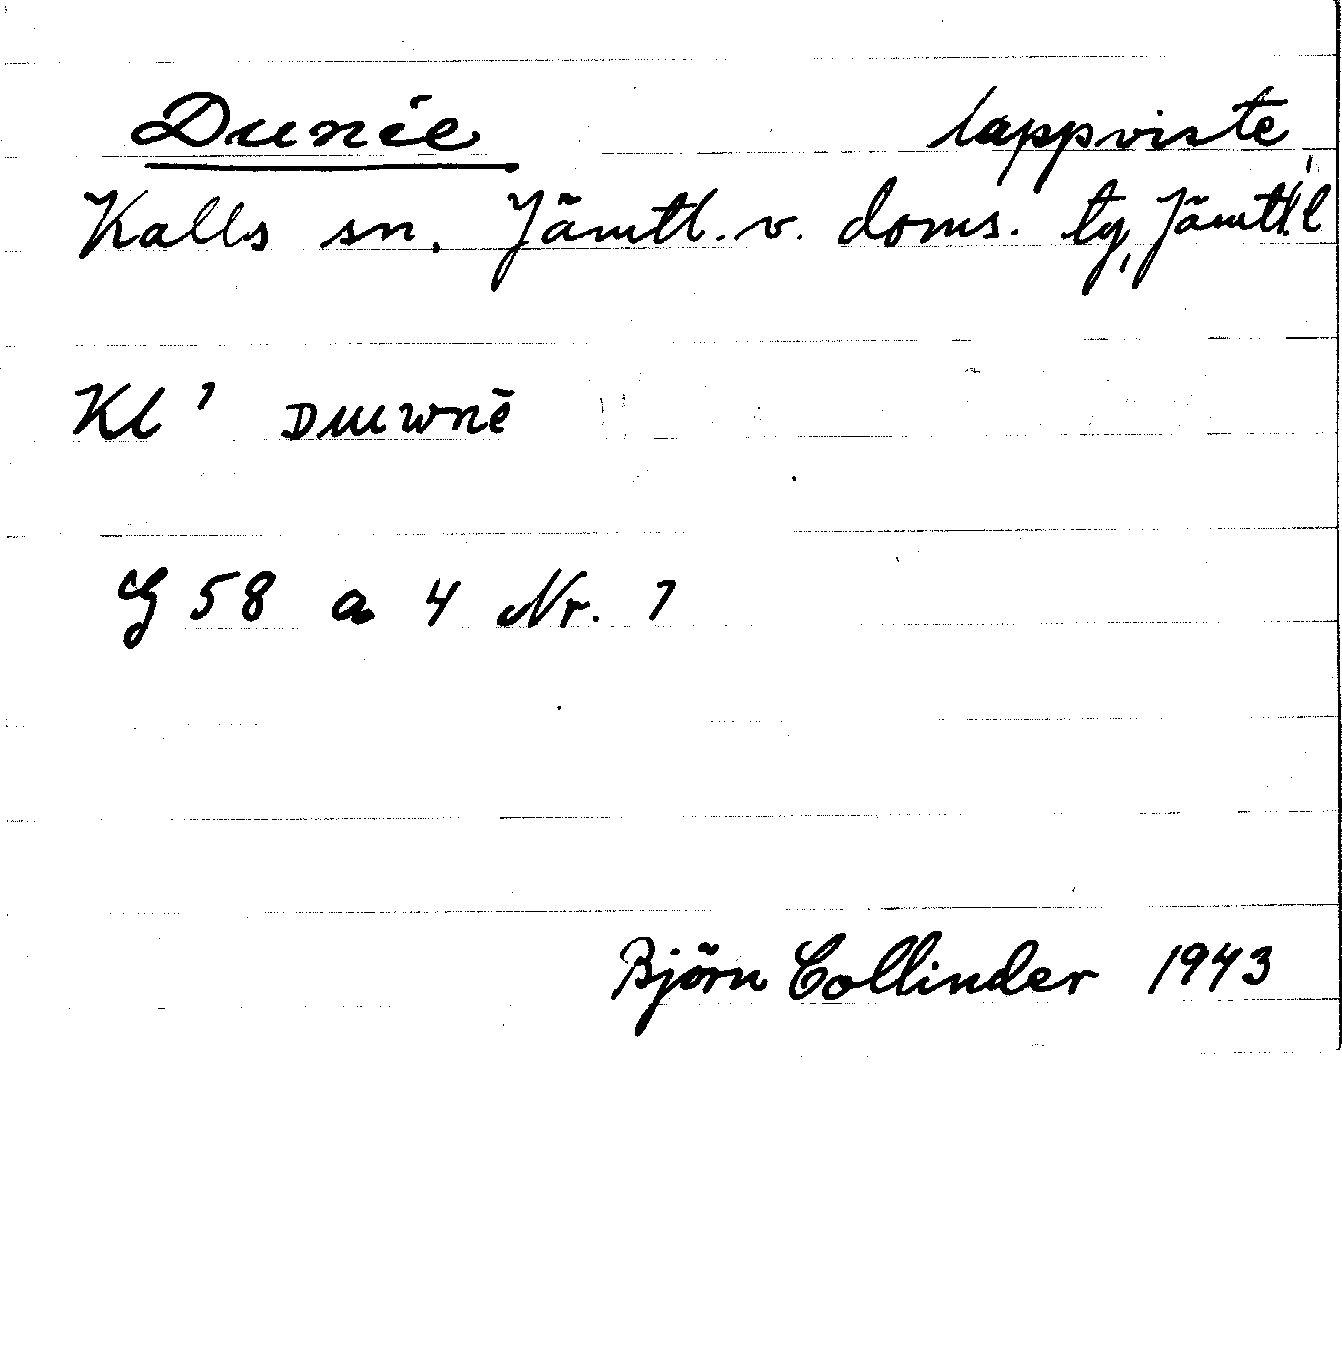 Dunie lappviste,
Kalls sn, Jämtl. v. doms. tg, Jämtl. l
Kl 1 Duuwnē
G 58 a 4 Nr. 1
Björn Collinder 1943